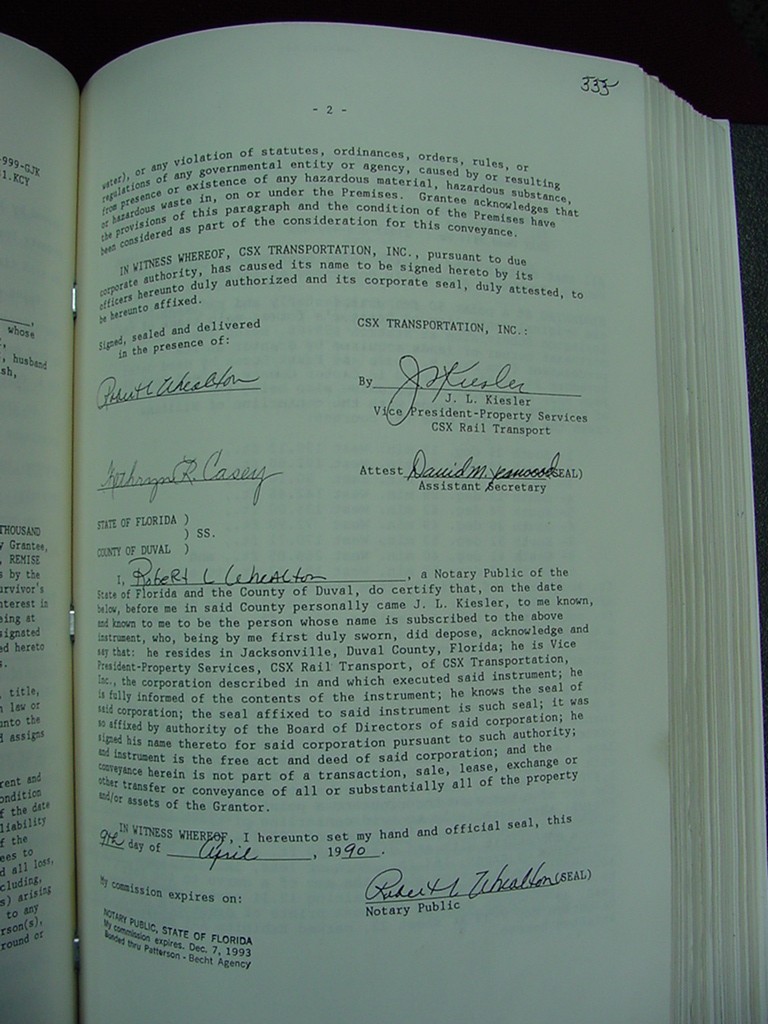 333
- 2 -
water), or any violation of statutes, ordinances, orders, rules, or
regulations of any governmental entity or agency, caused by or resulting
from presence or existence of any hazardous material, hazardous substance,
or hazardous waste in, on or under the Premises. Grantee acknowledges that
the provisions of this paragraph and the condition of the Premises have
been considered as part of the consideration for this conveyance.
IN WITNESS WHEREOF, CSX TRANSPORTATION, INC., pursuant to due
corporate authority, has caused its name to be signed hereto by its
officers hereunto duly authorized and its corporate seal, duly attested, to
be hereunto affixed.
Signed, sealed and delivered
in the presence of:
CSX TRANSPORTATION, INC.:
Robert L Whealton
By J L Kiesler
J. L. Kiesler
Vice President-Property Services
CSX Rail Transport
Kathryn R. Casey
Attest David M. Yearwood (SEAL)
Assistant Secretary
STATE OF FLORIDA )
) SS.
COUNTY OF DUVAL )
I, Robert L Whealton, a Notary Public of the
State of Florida and the County of Duval, do certify that, on the date
below, before me in said County personally came J. L. Kiesler, to me known,
and known to me to be the person whose name is subscribed to the above
instrument, who, being by me first duly sworn, did depose, acknowledge and
say that: he resides in Jacksonville, Duval County, Florida; he is Vice
President-Property Services, CSX Rail Transport, of CSX Transportation,
Inc., the corporation described in and which executed said instrument; he
is fully informed of the contents of the instrument; he knows the seal of
said corporation; the seal affixed to said instrument is such seal; it was
so affixed by authority of the Board of Directors of said corporation; he
signed his name thereto for said corporation pursuant to such authority;
and instrument is the free act and deed of said corporation; and the
conveyance herein is not part of a transaction, sale, lease, exchange or
other transfer or conveyance of all or substantially all of the property
and/or assets of the Grantor.
IN WITNESS WHEREOF, I hereunto set my hand and official seal, this
9th day of April, 1990.
My commission expires on:
Robert L Whealton (SEAL)
Notary Public
NOTARY PUBLIC, STATE OF FLORIDA
My commission expires Dec. 7, 1993
Bonded thru Patterson - Becht Agency
999-GJK
1.KCY
whose
husband
THOUSAND
Grantee,
REMISE
s by the
urvivor's
nterest in
eing at
signated
d hereto
title,
law or
unto the
assigns
rent and
ondition
f the date
liability
f the
ees to
d all loss,
cluding,
s) arising
to any
rson(s),
round or